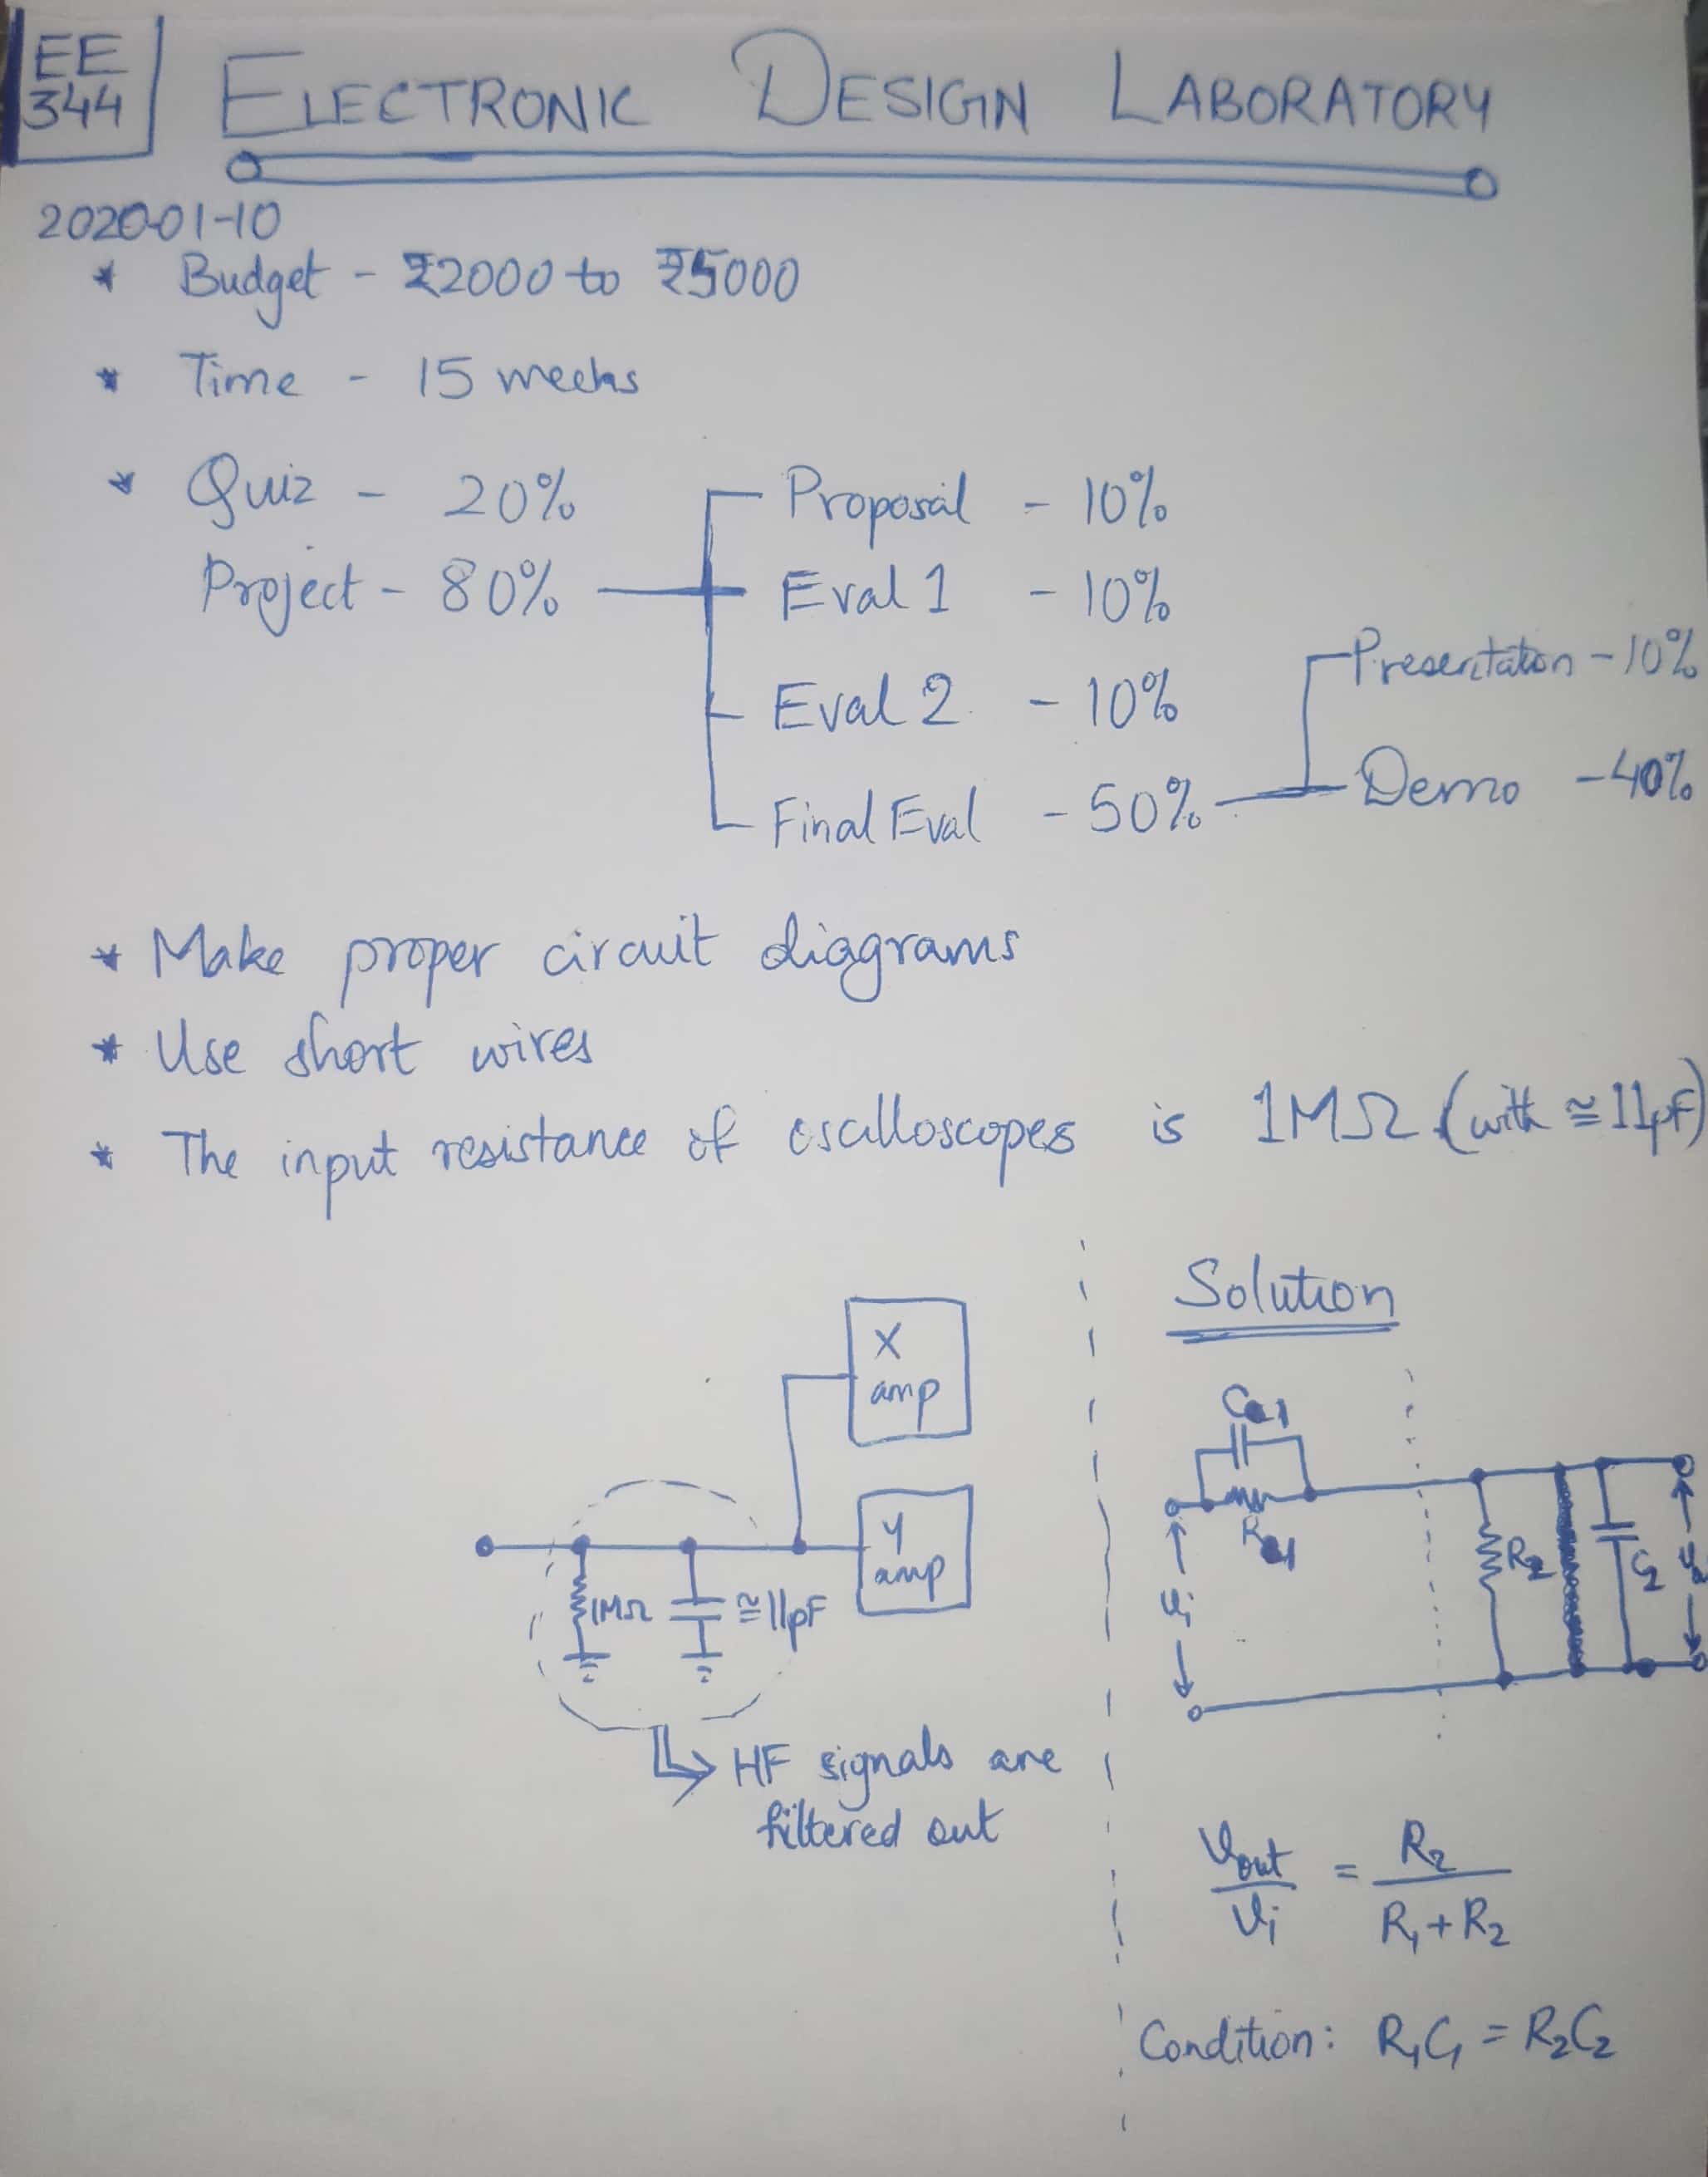 EE
344
ELECTRONIC DESIGN LABORATORY
2020-01-10
* Budget - ₹2000 to ₹5000
* Time - 15 weeks
* Quiz - 20%
Project - 80%
Proposal - 10%
Eval 1 - 10%
Eval 2 - 10%
Final Eval - 50%
Presentation - 10%
Demo - 40%
* Make proper circuit diagrams
* Use short wires
* The input resistance of oscilloscopes is 1MΩ (with ≅ 11pF)
X
amp
Y
amp
1MΩ
≅11pF
HF signals are
filtered out
Solution
C1
R1
Vi
R2
C2
Vout/Vi = R2/(R1+R2)
Condition: R1C1 = R2C2